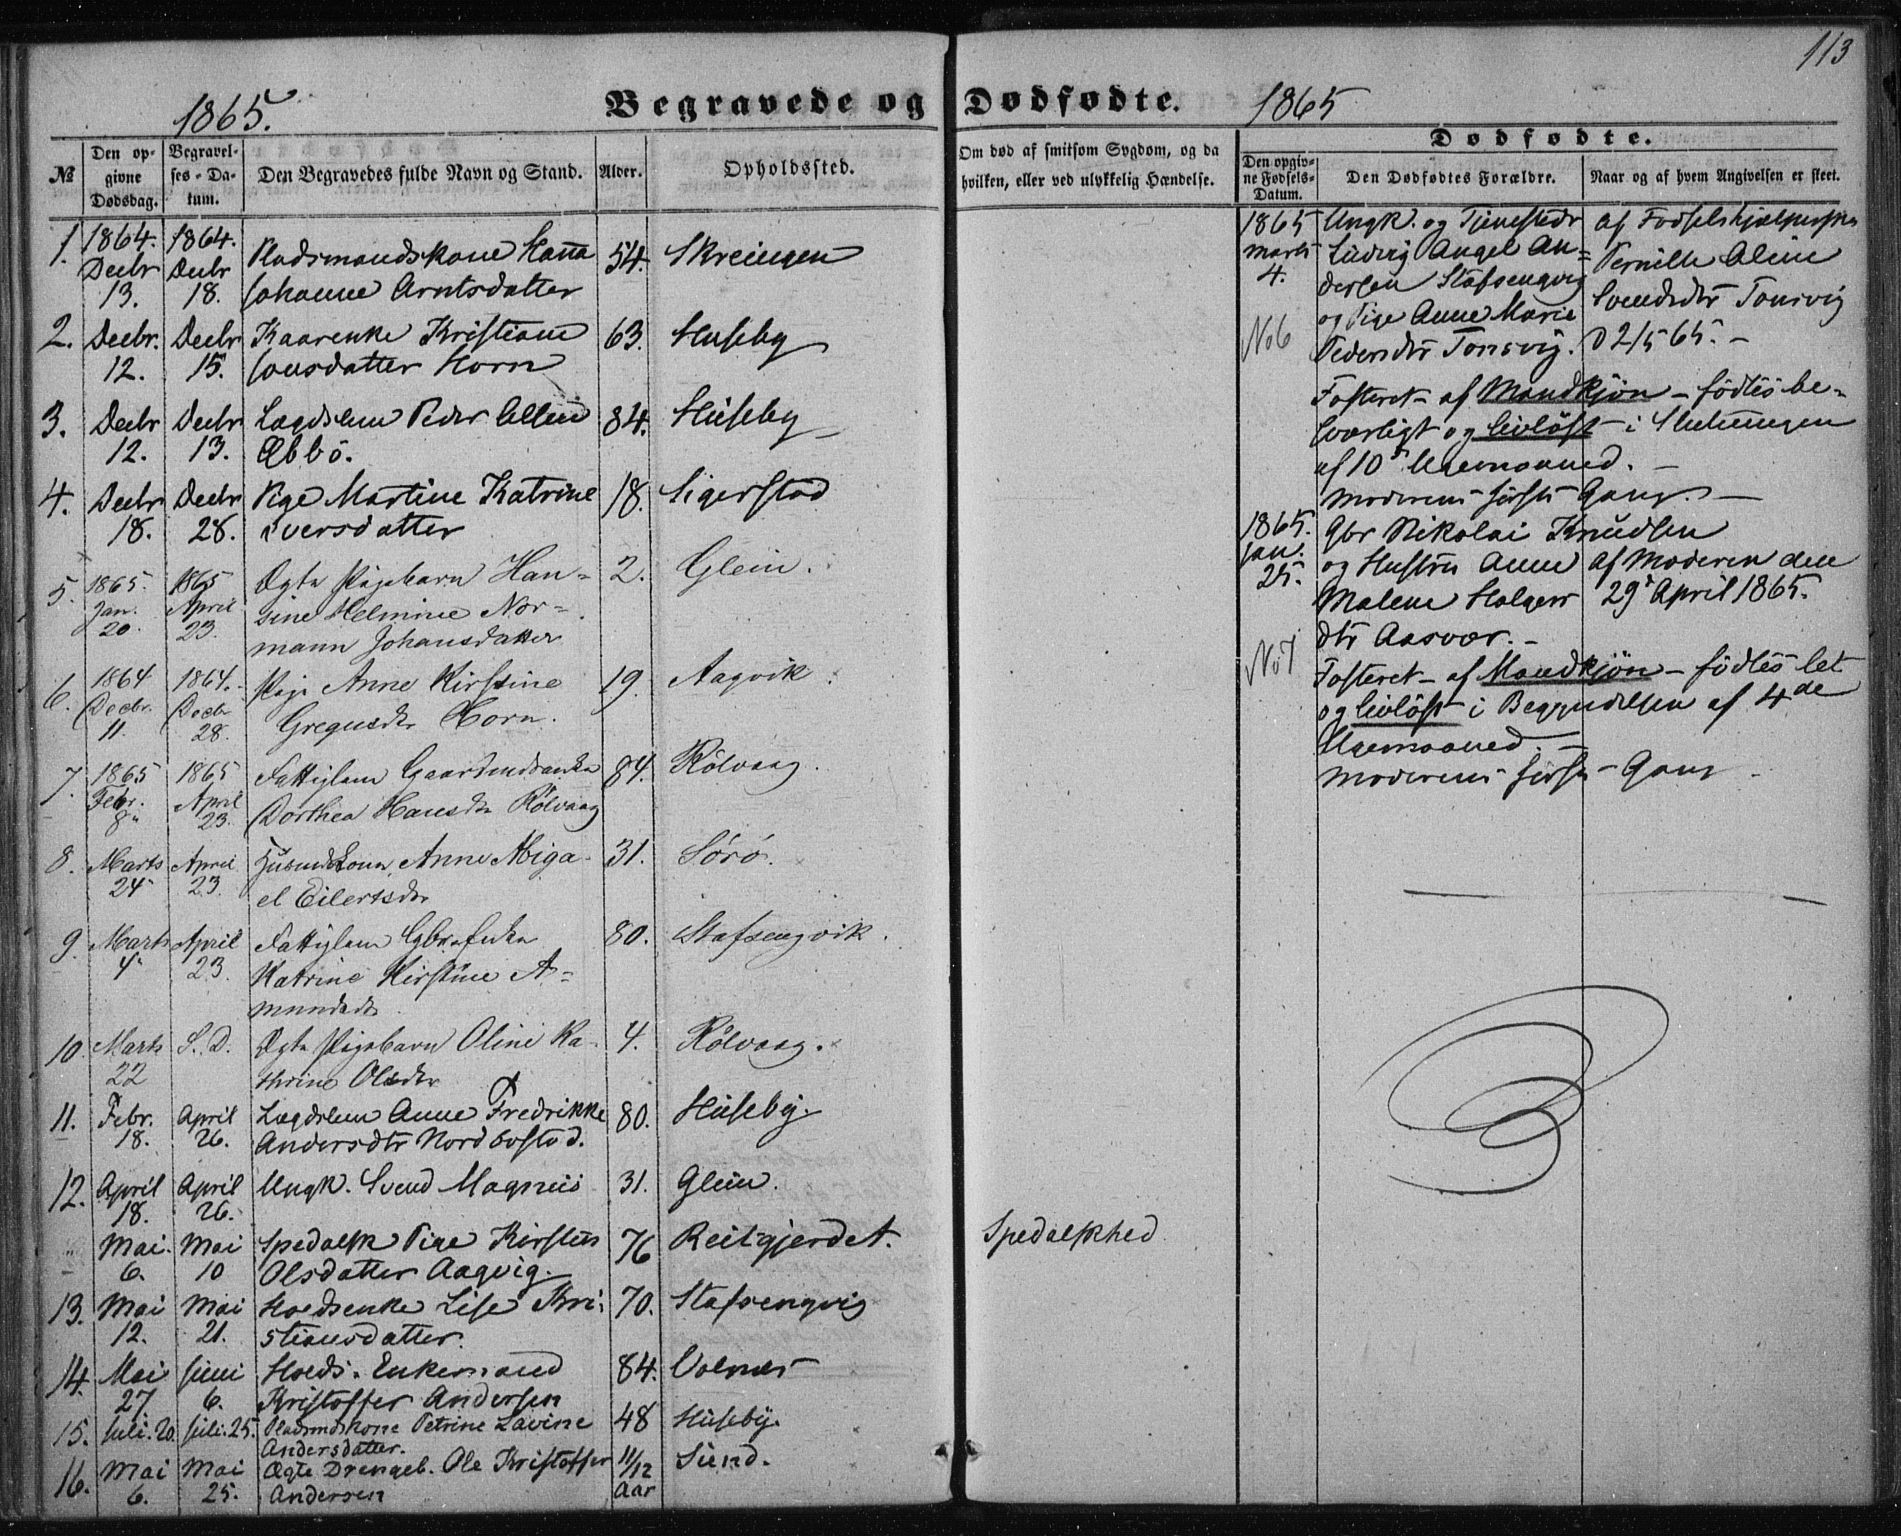 113
1865.
Begravede og Dødfødte.
1865
№
Den op-
givne
Dødsdag.
Begravel-
ses-Da-
tum.
Den Begravedes fulde Navn og Stand.
Alder.
Opholdssted.
Om død af smitsom Sygdom, og da
hvilken, eller ved ulykkelig Hændelse.
Dødfødte.
Den opgiv-
ne Fødsels-
Datum.
Den Dødfødtes Forældre.
Naar og af hvem Angivelsen er skeet.
1. 1864. 1864.
Decbr Decbr Pladsmandskone Hanna 54. Skreingen
13. 18. Johanne Arntsdatter
2. Decbr. Decbr Kaarenke Kristiane 63. Huseby
12. 15. Jonsdatter Horn
3. Decbr Decbr Lægdslem Peder 84. Huseby
12. 13. Æbbö.
4. Decbr Decbr Pige Martine Katrine 18. Sigerstad
18. 28. Iversdatter
5. 1865. 1865 Ægte Pigebarn Han- 2. Glein.
Jan. April sine Helmine Nor-
20. 23. mann Johansdatter
6. 1864 1864. Pige Anne Kirstine 19. Aagvik
Decbr. Decbr Gregusdtr Horn.
11. 28.
7. 1865 1865 Fattiglem 84. Rölvaag.
Febr. April Dorthea Hansdtr Rölvaag
8. 23.
8. Marts April Anne Abiga- 31. Sörö.
24 23. el Eilertsdtr
9. Marts April Fattiglem 80. Stafsengvik.
4 23. Katrine Kirstine A-
mundsdtr
10. Marts S. D. Ægte Pigebarn Oline Ka- 4. Rölvaag.
22 thrine Olsdtr
11. Febr. April Lægdslem Anne Fredrikke 80. Huseby.
18. 26. Andersdtr Nordbostad.
12. April April Ungk. Svend Magnus 31. Glein.
18. 26.
Mai. Mai Spedalsk Pige Kirsten 76 Reitgjerdet. Spedalskhed
6. 10 Olsdatter Aagvig.
13. Mai Mai Hoedsenke Lise Kri- 70. Stafsengvig
12. 21. stiansdatter.
14. Mai Juni Hoeds. Enkemand 84. Volnes
27 6. Kristoffer Andersen
15. Juli. 20. Juli. 25. Pladsmdskone Petrine Lavine 48 Huseby.
Andersdatter.
16. Mai Mai Ægte Drengeb. Ole Kristoffer 11/12 Sund.
6. 25. Andersen Aar
1865 Ungk. og Tjenestedr af Fødselshjælpersken
Marts Ludvig Angel An- Pernille Oline
4. dersen Stafsengvig Svendsdtr Tonsvig
og Pige Anne Marie
No 6 Pedersdtr Tonsvig. D 2/5 65. -
Fosteret - af Mandkjön - födtes be-
sværligt og livlöst - i Slutningen
af 10de Ugemaaned. -
Moderens förste Gang. -
1865. Gbr Nikolai Knudsen
Jan. og Hustru Anne af Moderen den
25. Malene Holger 29de April 1865.
dtr Aasvær. -
No 7 Fosteret - af Mandkjön - födtes let
og livlöst i Begyndelsen af 4de
Ugemaaned. -
Moderens förste Gang -